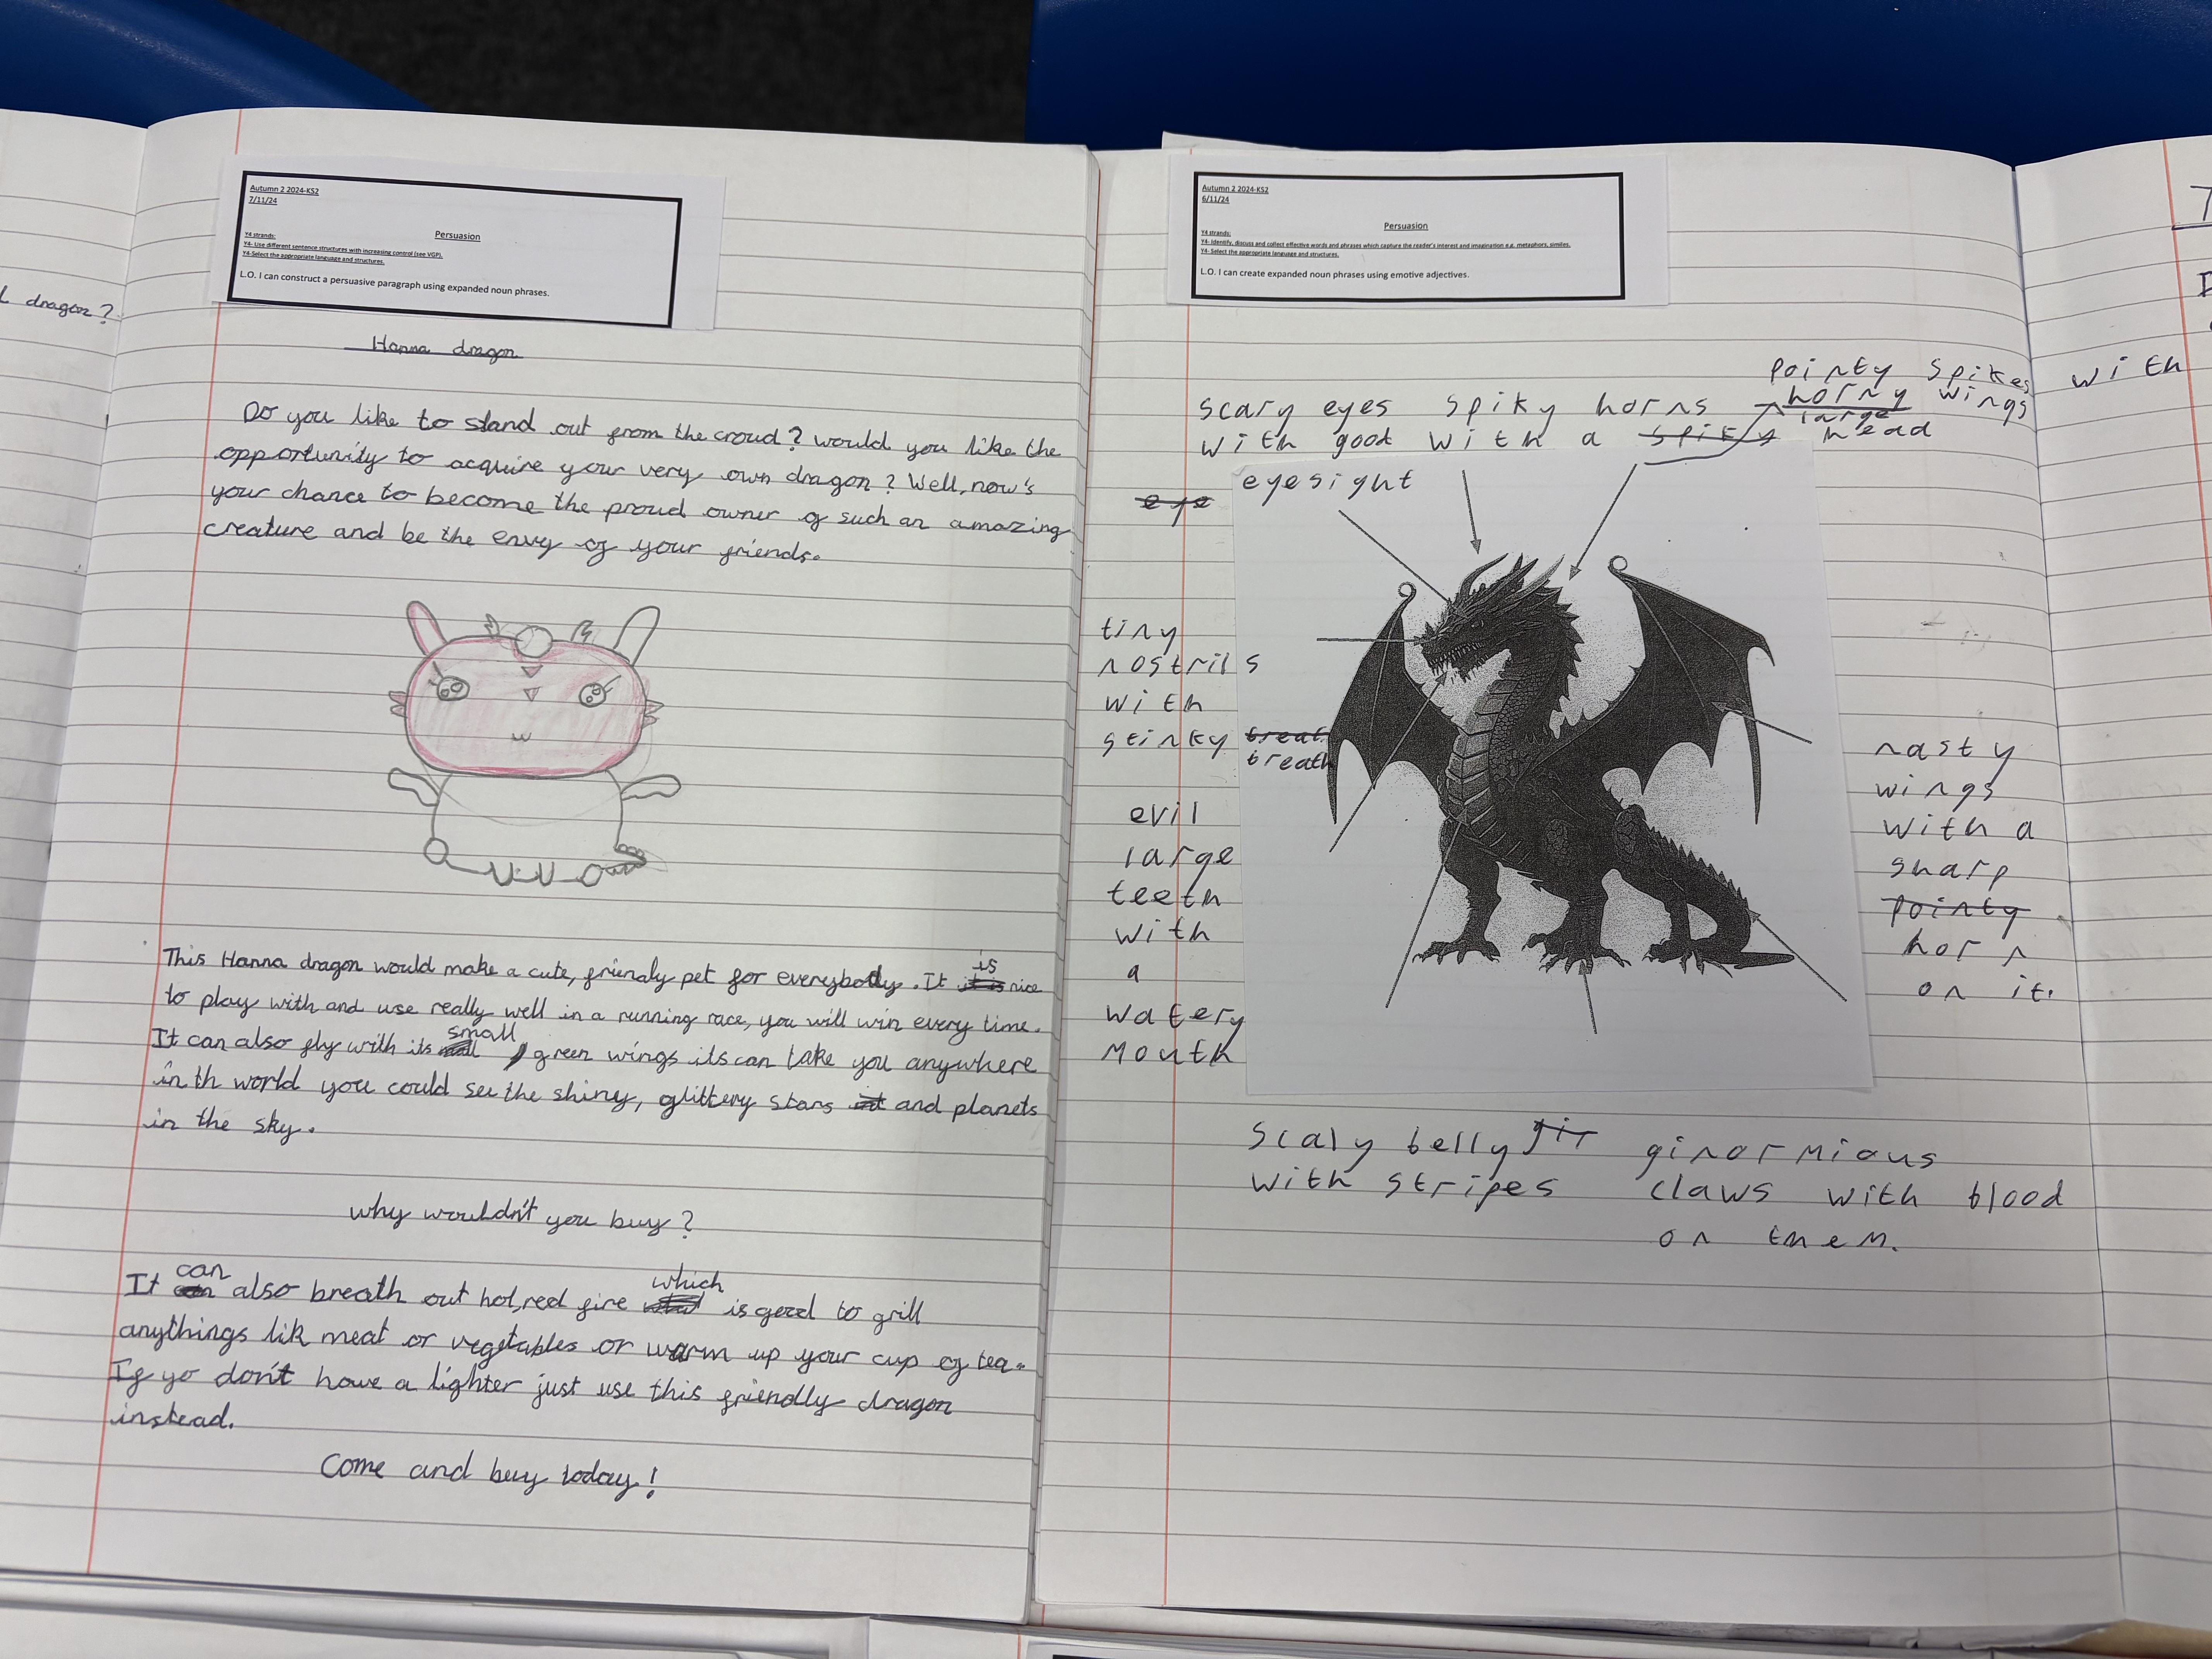 L dragon?
Autumn 2 2024-KS2
7/11/24
Persuasion
Y4 strands:
Y4- Use different sentence structures with increasing control (see VGP).
Y4-Select the appropriate language and structures.
L.O. I can construct a persuasive paragraph using expanded noun phrases.
Hanna dragon
Do you like to stand out from the croud? would you like the
opportunity to acquire your very own dragon? Well, now's
your chance to become the proud owner of such an amazing
creature and be the envy of your friends.
This Hanna dragon would make a cute, frienaly pet for everybody. It is nice
to play with and use really well in a running race, you will win every time.
It can also fly with its small, green wings its can take you anywhere
in th world you could see the shiny, glittery stars and planets
in the sky.
why wouldn't you buy?
It can also breath out hot, red fire which is good to grill
anythings lik meat or vegetables or warm up your cup of tea.
If yo don't have a lighter just use this friendly dragon
instead.
Come and buy today!
Autumn 2 2024-KS2
6/11/24
Persuasion
Y4 strands:
Y4- Identify, discuss and collect effective words and phrases which capture the reader's interest and imagination e.g. metaphors, similes.
Y4- Select the appropriate language and structures.
L.O. I can create expanded noun phrases using emotive adjectives.
scary eyes
with good
eyesight
eye
spiky horns
with a spiky large head
pointy spikes with
horny wings
tiny
nostrils
with
stinky breat
breath
evil
large
teeth
with
a
watery
mouth
nasty
wings
with a
sharp
pointy
horn
on it.
scaly belly
with stripes
ginormious
claws with blood
on them.